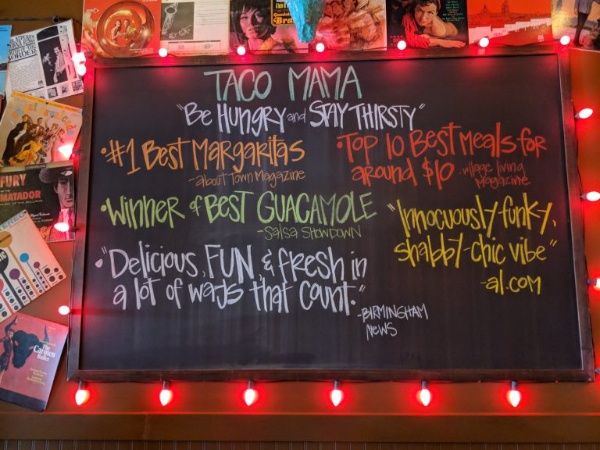 TACO MAMA
"BE HUNGRY and STAY THIRSTY"
•#1 BEST MARGARITAS
-about TOWN MAGAZINE
•TOP 10 BEST MEALS FOR
around $10 -village living
MAGAZINE
•WINNER of BEST GUACAMOLE
-SALSA SHOWDOWN
"INNOCUOUSLY-FUNKY,
SHABBY-CHIC VIBE"
-al.com
•"Delicious, FUN, & fresh in
a lot of ways that count."
-BIRMINGHAM
NEWS
FURY
MATADOR